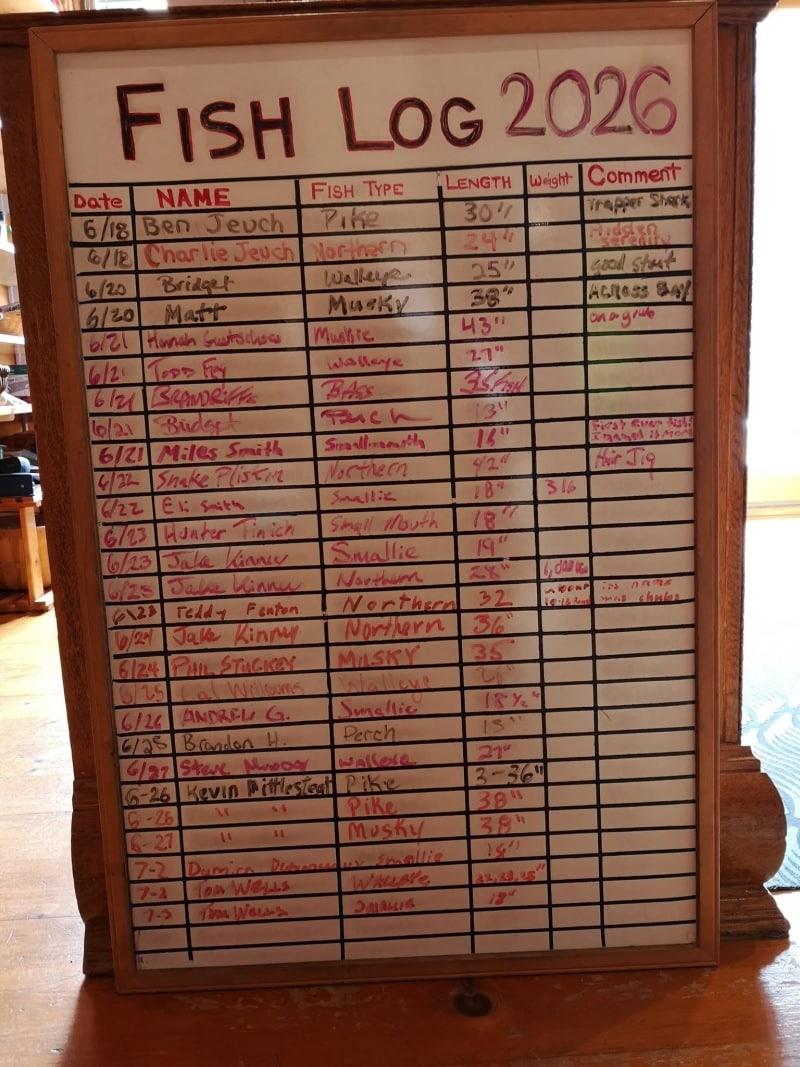 FISH LOG 2026
Date NAME FISH TYPE LENGTH Weight Comment
6/18 Ben Jeuch Pike 30" Trapper Shack
6/18 Charlie Jeuch Northern 24" Hidden serenity
6/20 Bridget Walleye 25" good start
6/20 Matt Musky 38" ACROSS BAY
6/21 Hannah Muskie 43" on a grub
6/21 TODD FEY Walleye 27"
6/21 BASS
6/21 Bridget Perch 13"
6/21 Miles Smith Smallmouth 16" First ever fish!
6/22 Snake Plisken Northern 42" Hair Jig
6/22 Eli Smith Smallie 18" 316
6/23 Hunter Tinich Small Mouth 18"
6/23 Jake Kinney Smallie 19"
6/23 Jake Kinney Northern 28"
6/23 Teddy Fenton Northern 32 its name was chubbs
6/24 Jake Kinney Northern 36"
6/24 PHIL STUCKEY MUSKY 35"
6/25 Cal Williams Walleye
6/26 ANDREW G. Smallie 18 ½"
6/25 Brandon H. Perch 13"
6/27 Steve Walleye 27"
6-26 Kevin Mittlestedt Pike 3-36"
6-26 " " Pike 38"
6-27 " " Musky 38"
7-2 Damien Smallie 18"
7-3 TOM WELLS WALLEYE
7-3 TOM WELLS SMALLIE 18"